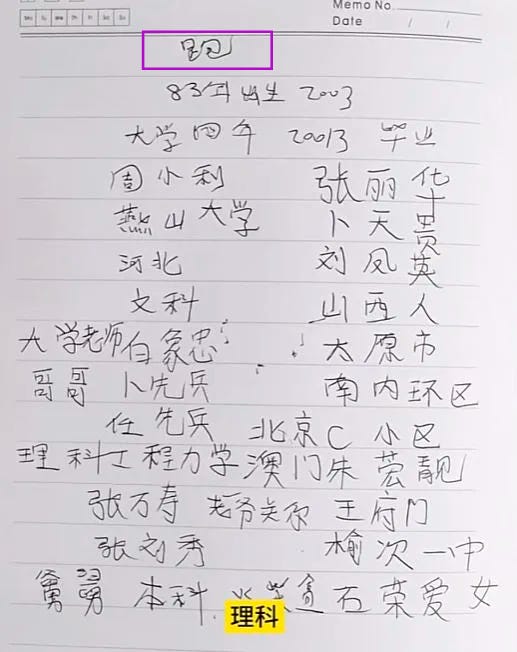 Memo No.
Date / /
83年出生 2003
大学四年 20013 毕业
周小利 张丽华
燕山大学 卜天贵
河北 刘凤英
文科 山西人
大学老师白象忠 太原市
哥哥 卜先兵 南内环区
任先兵 北京C小区
理科工程力学澳门朱芸靓
张万寿 老爷关系 王府门
张刘秀 榆次一中
舅舅 本科 石荣爱女
理科